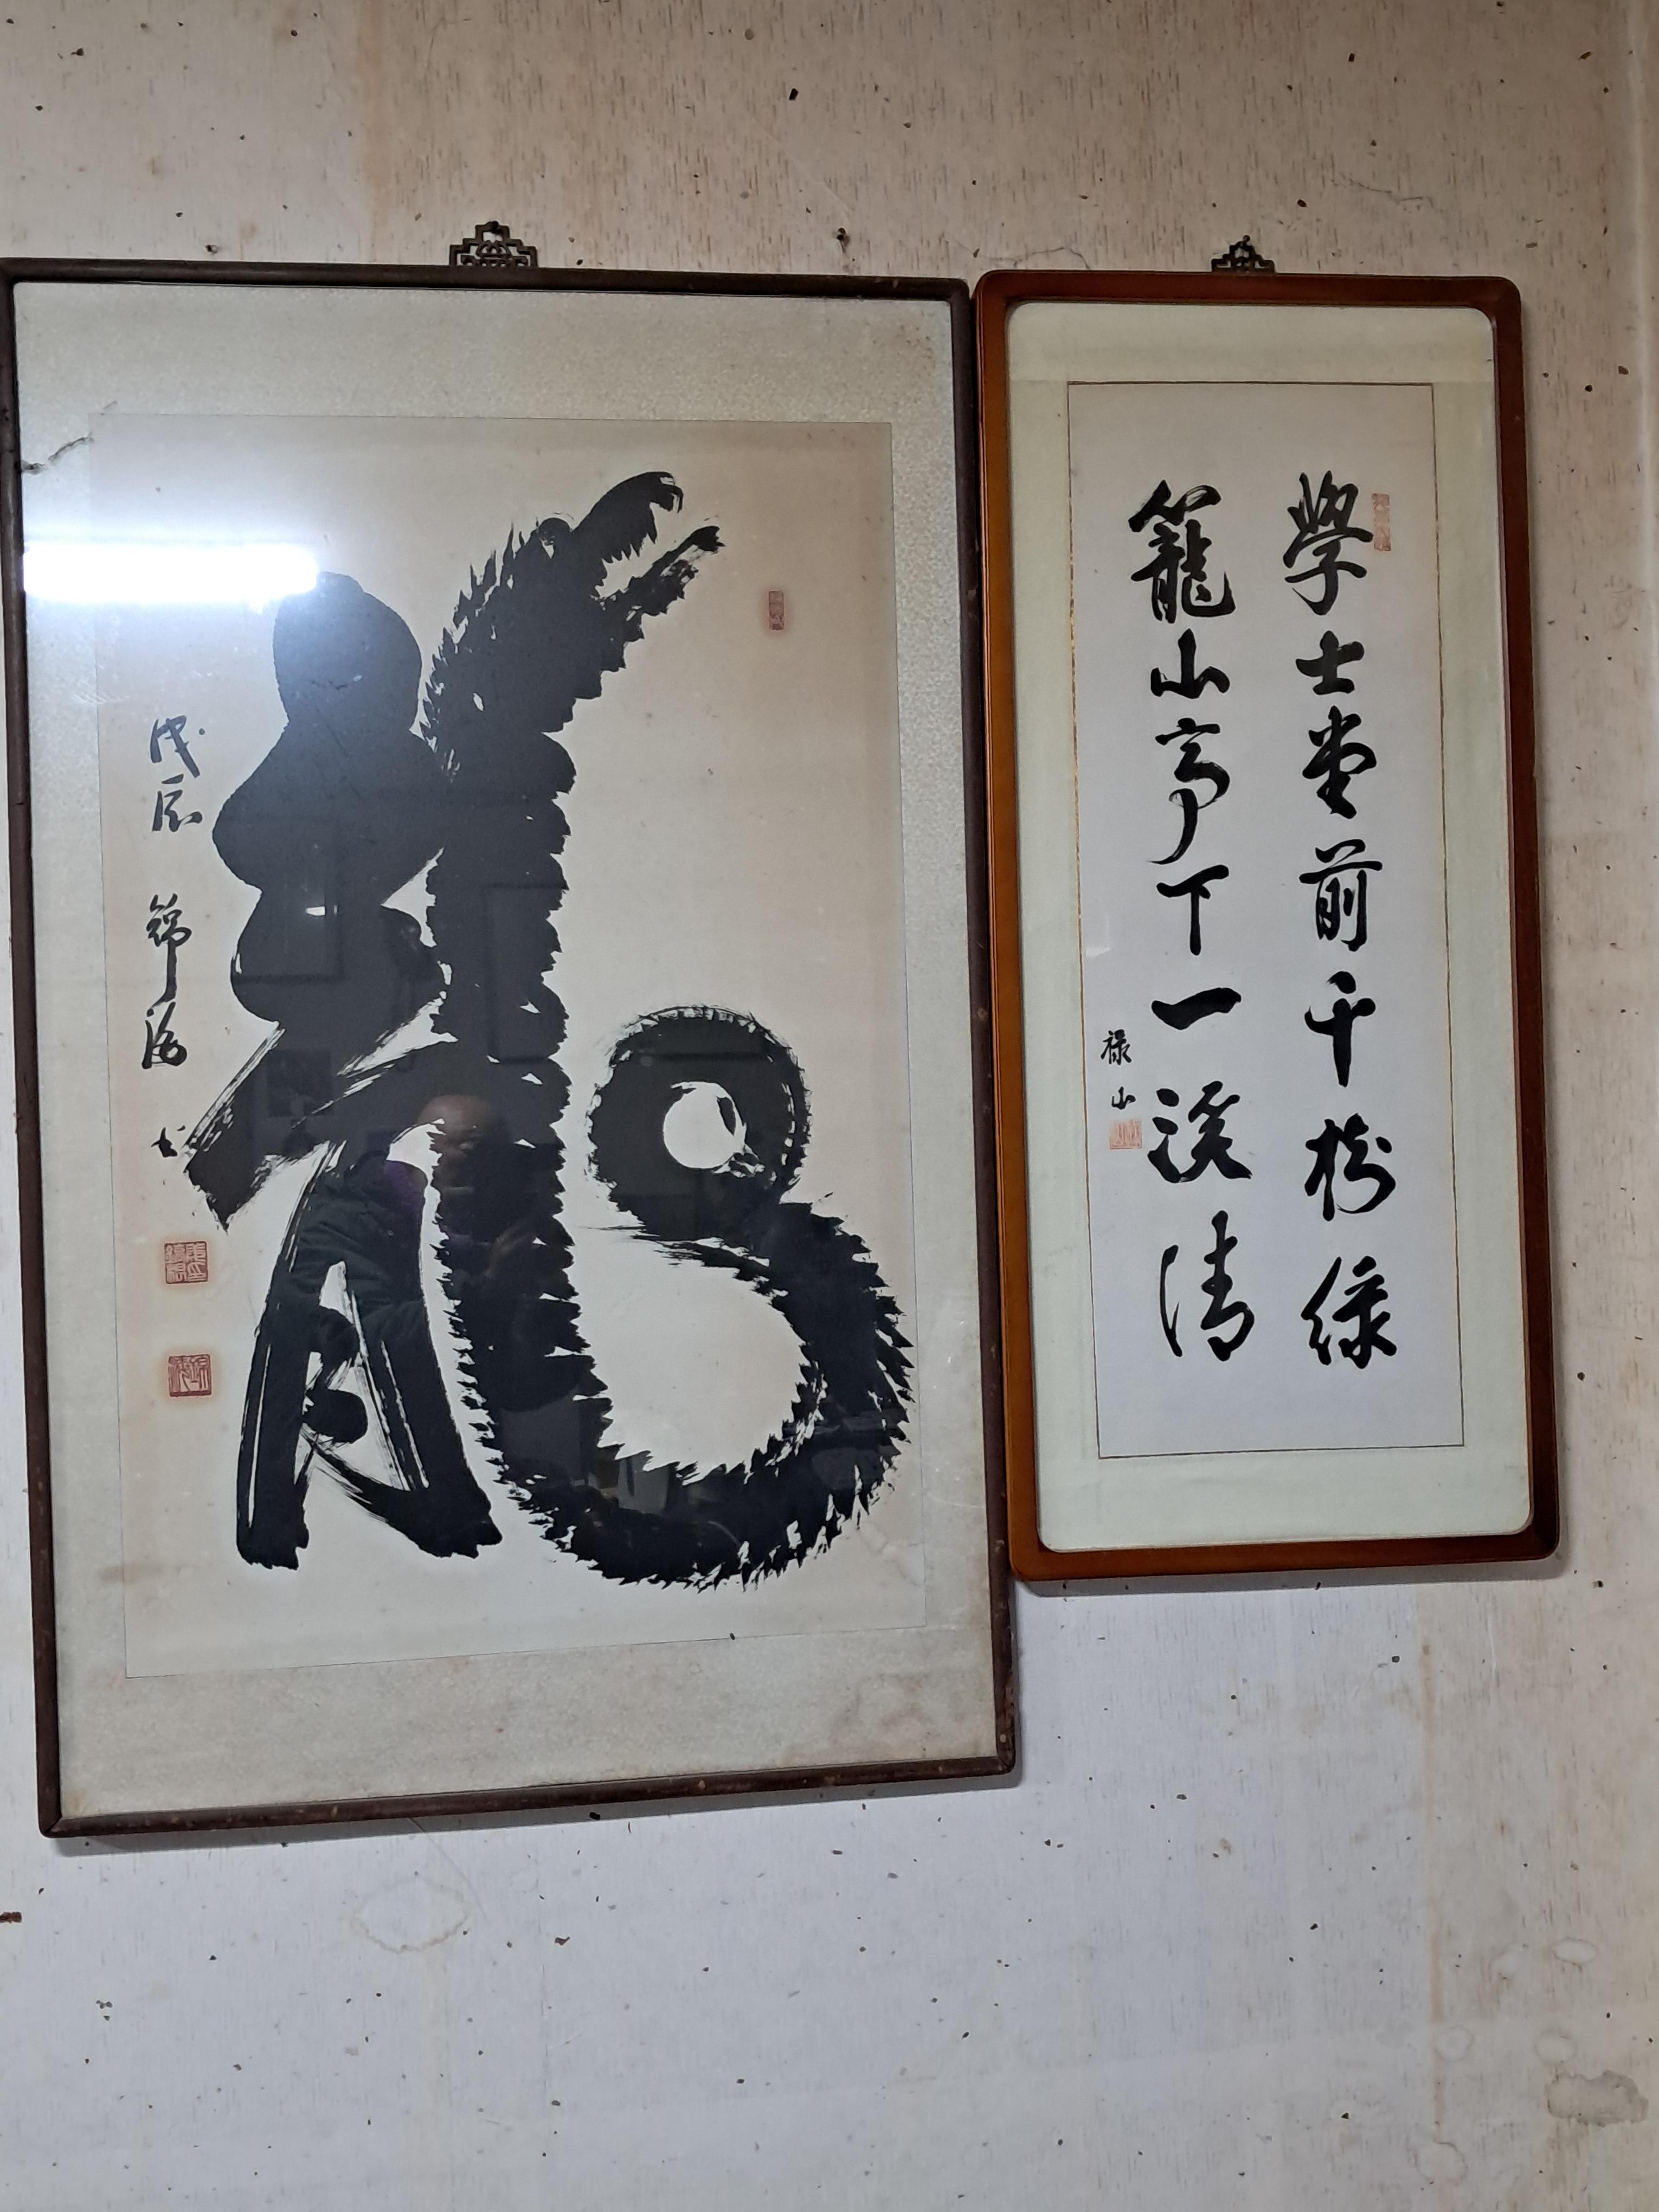 學士堂前千樹綠
籠山亭下一溪清
祿山
龍
戊辰